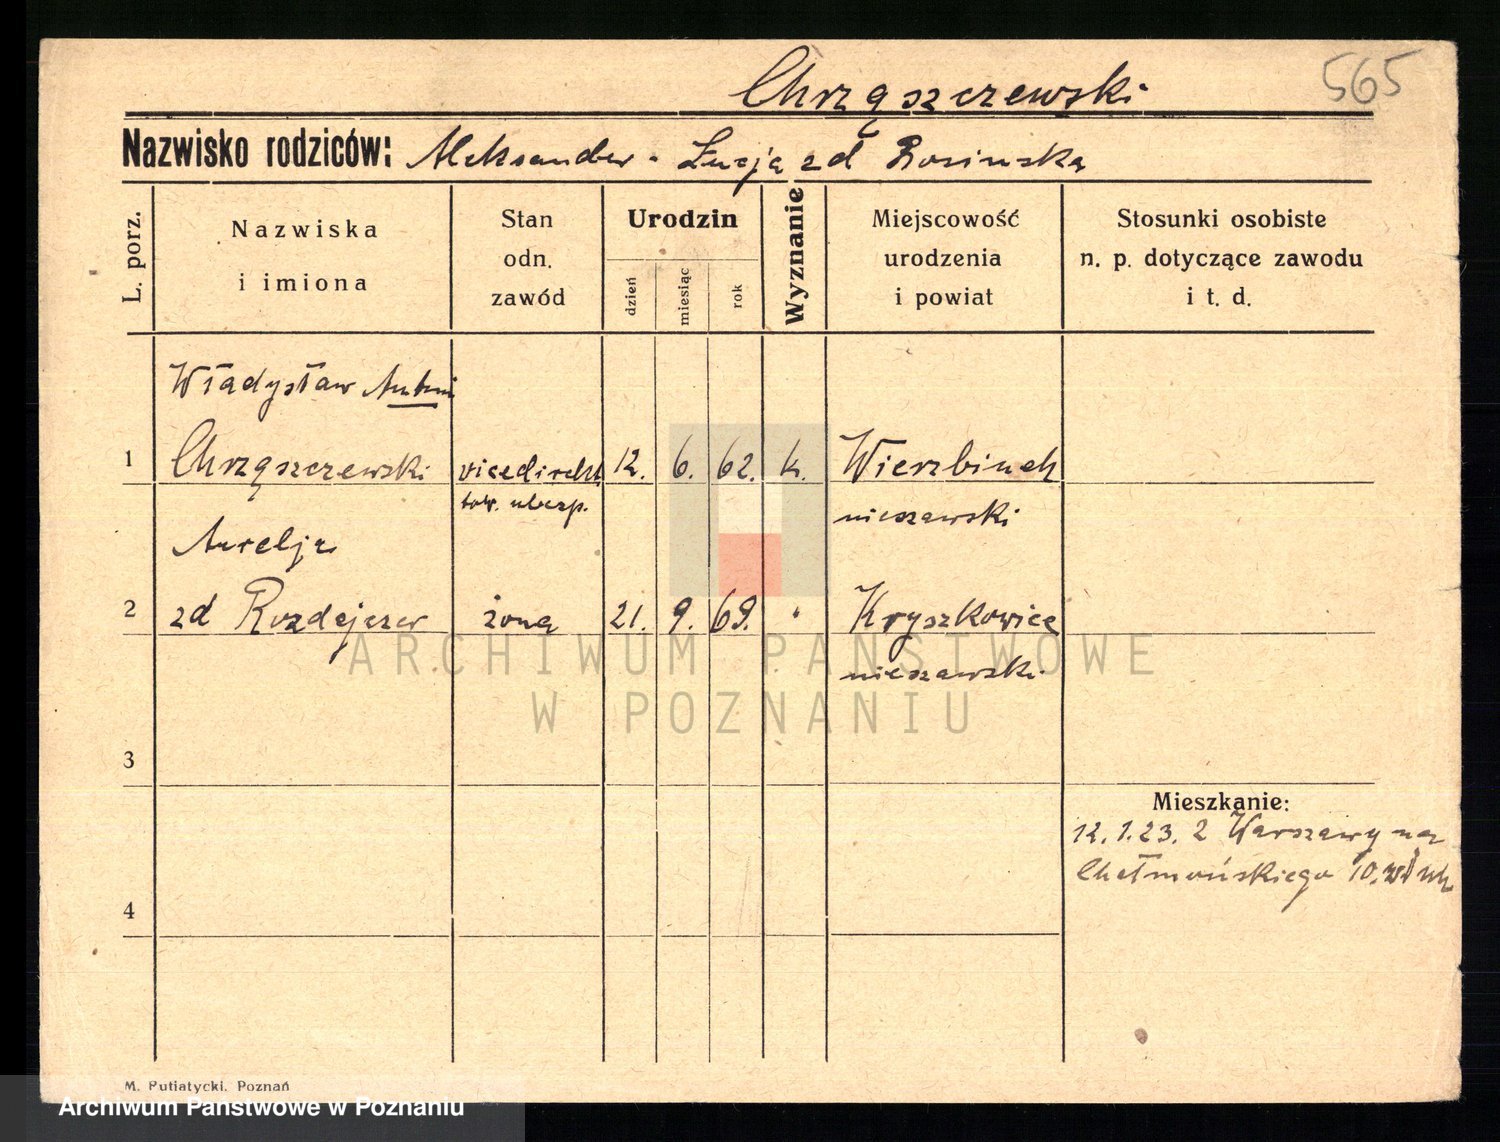 Chrząszczewski
565
Nazwisko rodziców: Aleksander - Łucja zd Rosinska
L. porz.
Nazwiska
i imiona
Stan
odn.
zawód
Urodzin
dzień
miesiąc
rok
Wyznanie
Miejscowość
urodzenia
i powiat
Stosunki osobiste
n. p. dotyczące zawodu
i t. d.
Władysław Antoni
1 Chrząszczewski vicedirekt. 12. 6. 62. k. Wierzbinek
tow. ubezp. nieszawski
Aurelja
2 zd Rozdejczer żona 21. 9. 69. " Kryszkowice
nieszawski
ARCHIWUM PAŃSTWOWE
W POZNANIU
3
Mieszkanie:
12. 1. 23. z Warszawy na
Chełmońskiego 10.
4
M. Putiatycki, Poznań
Archiwum Państwowe w Poznaniu